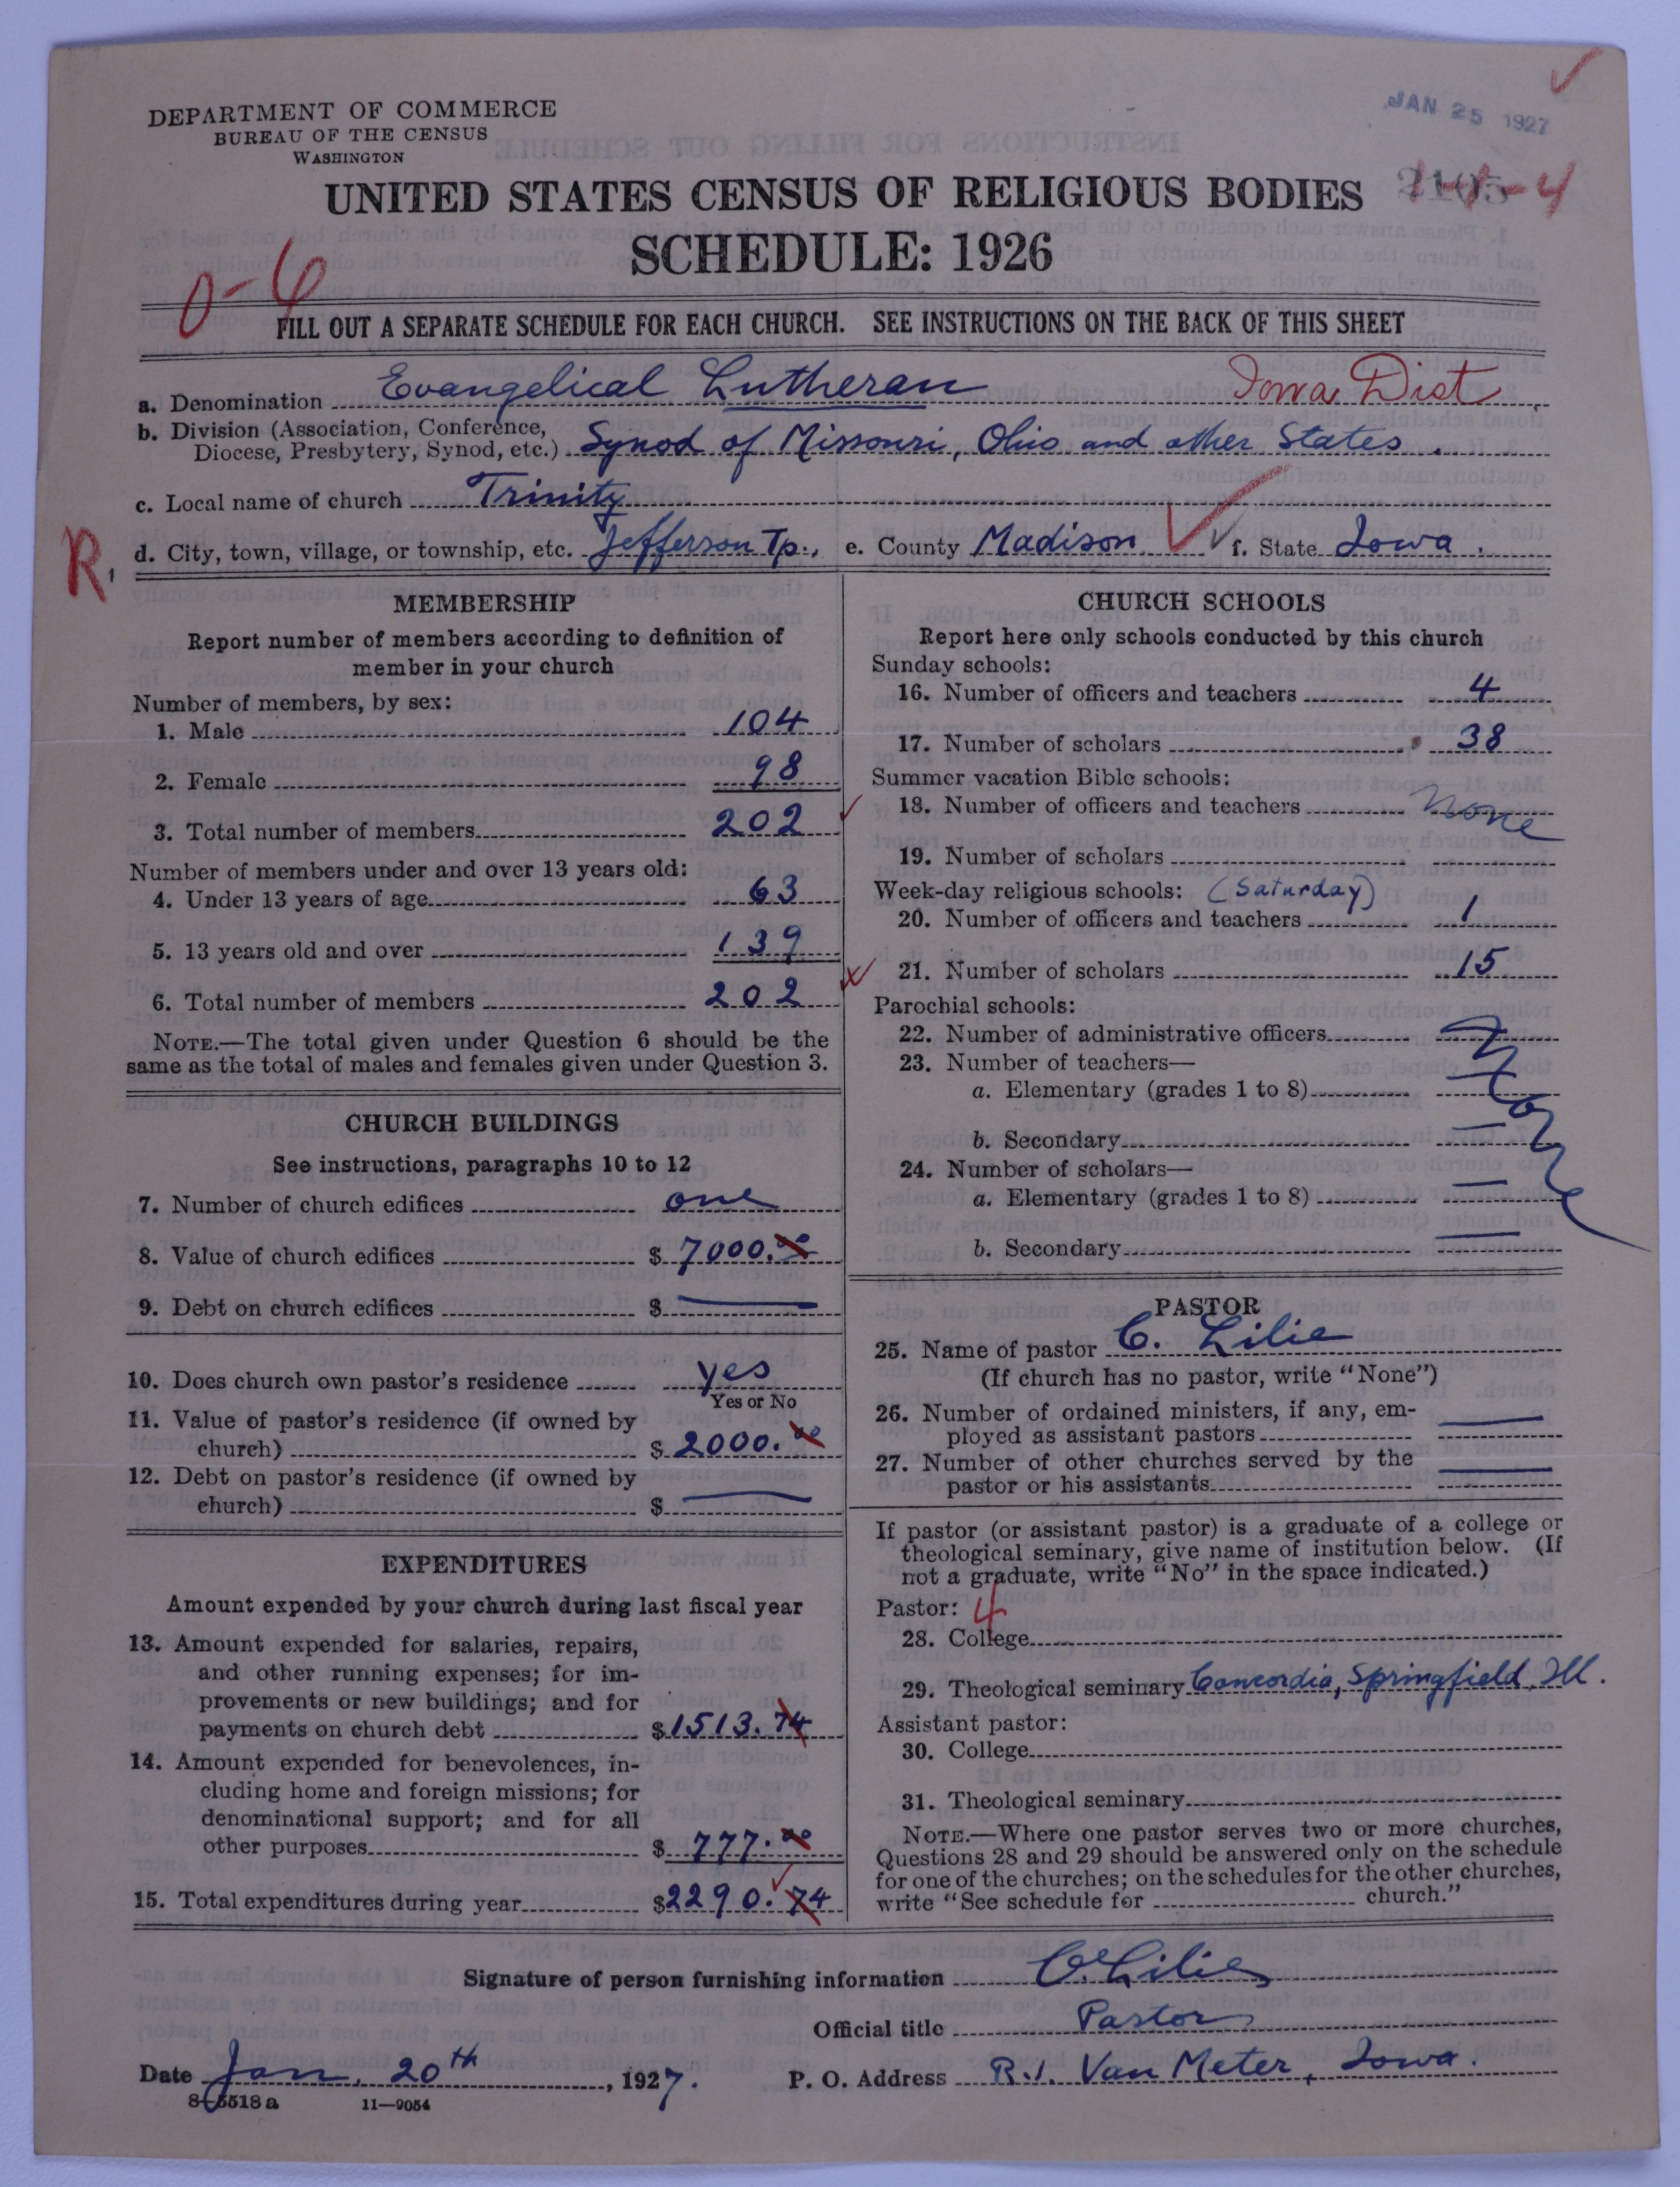 DEPARTMENT OF COMMERCE
BUREAU OF THE CENSUS
WASHINGTON
JAN 25 1927
UNITED STATES CENSUS OF RELIGIOUS BODIES
SCHEDULE: 1926
0-6
FILL OUT A SEPARATE SCHEDULE FOR EACH CHURCH. SEE INSTRUCTIONS ON THE BACK OF THIS SHEET
a. Denomination Evangelical Lutheran Iowa Dist.
b. Division (Association, Conference,
Diocese, Presbytery, Synod, etc.) Synod of Missouri, Ohio and other States.
c. Local name of church Trinity
R. d. City, town, village, or township, etc. Jefferson Tp., e. County Madison f. State Iowa.
MEMBERSHIP
Report number of members according to definition of
member in your church
Number of members, by sex:
1. Male 104
2. Female 98
3. Total number of members 202
Number of members under and over 13 years old:
4. Under 13 years of age 63
5. 13 years old and over 139
6. Total number of members 202
NOTE.—The total given under Question 6 should be the
same as the total of males and females given under Question 3.
CHURCH BUILDINGS
See instructions, paragraphs 10 to 12
7. Number of church edifices one
8. Value of church edifices $ 7000.00
9. Debt on church edifices $ —
10. Does church own pastor's residence yes
Yes or No
11. Value of pastor's residence (if owned by
church) $ 2000.00
12. Debt on pastor's residence (if owned by
church) $ —
EXPENDITURES
Amount expended by your church during last fiscal year
13. Amount expended for salaries, repairs,
and other running expenses; for im-
provements or new buildings; and for
payments on church debt $1513.74
14. Amount expended for benevolences, in-
cluding home and foreign missions; for
denominational support; and for all
other purposes $ 777.00
15. Total expenditures during year $2290.74
CHURCH SCHOOLS
Report here only schools conducted by this church
Sunday schools:
16. Number of officers and teachers 4
17. Number of scholars 38
Summer vacation Bible schools:
18. Number of officers and teachers None
19. Number of scholars
Week-day religious schools: (Saturday)
20. Number of officers and teachers 1
21. Number of scholars 15
Parochial schools:
22. Number of administrative officers None
23. Number of teachers—
a. Elementary (grades 1 to 8) —
b. Secondary —
24. Number of scholars—
a. Elementary (grades 1 to 8) —
b. Secondary —
PASTOR
25. Name of pastor C. Lilie
(If church has no pastor, write "None")
26. Number of ordained ministers, if any, em-
ployed as assistant pastors —
27. Number of other churches served by the
pastor or his assistants —
If pastor (or assistant pastor) is a graduate of a college or
theological seminary, give name of institution below. (If
not a graduate, write "No" in the space indicated.)
Pastor: 4
28. College
29. Theological seminary Concordia, Springfield, Ill.
Assistant pastor:
30. College
31. Theological seminary
NOTE.—Where one pastor serves two or more churches,
Questions 28 and 29 should be answered only on the schedule
for one of the churches; on the schedules for the other churches,
write "See schedule for church."
Signature of person furnishing information C. Lilie
Official title Pastor
Date Jan. 20th, 1927. P. O. Address R.1. Van Meter, Iowa.
8-5518a 11—9054